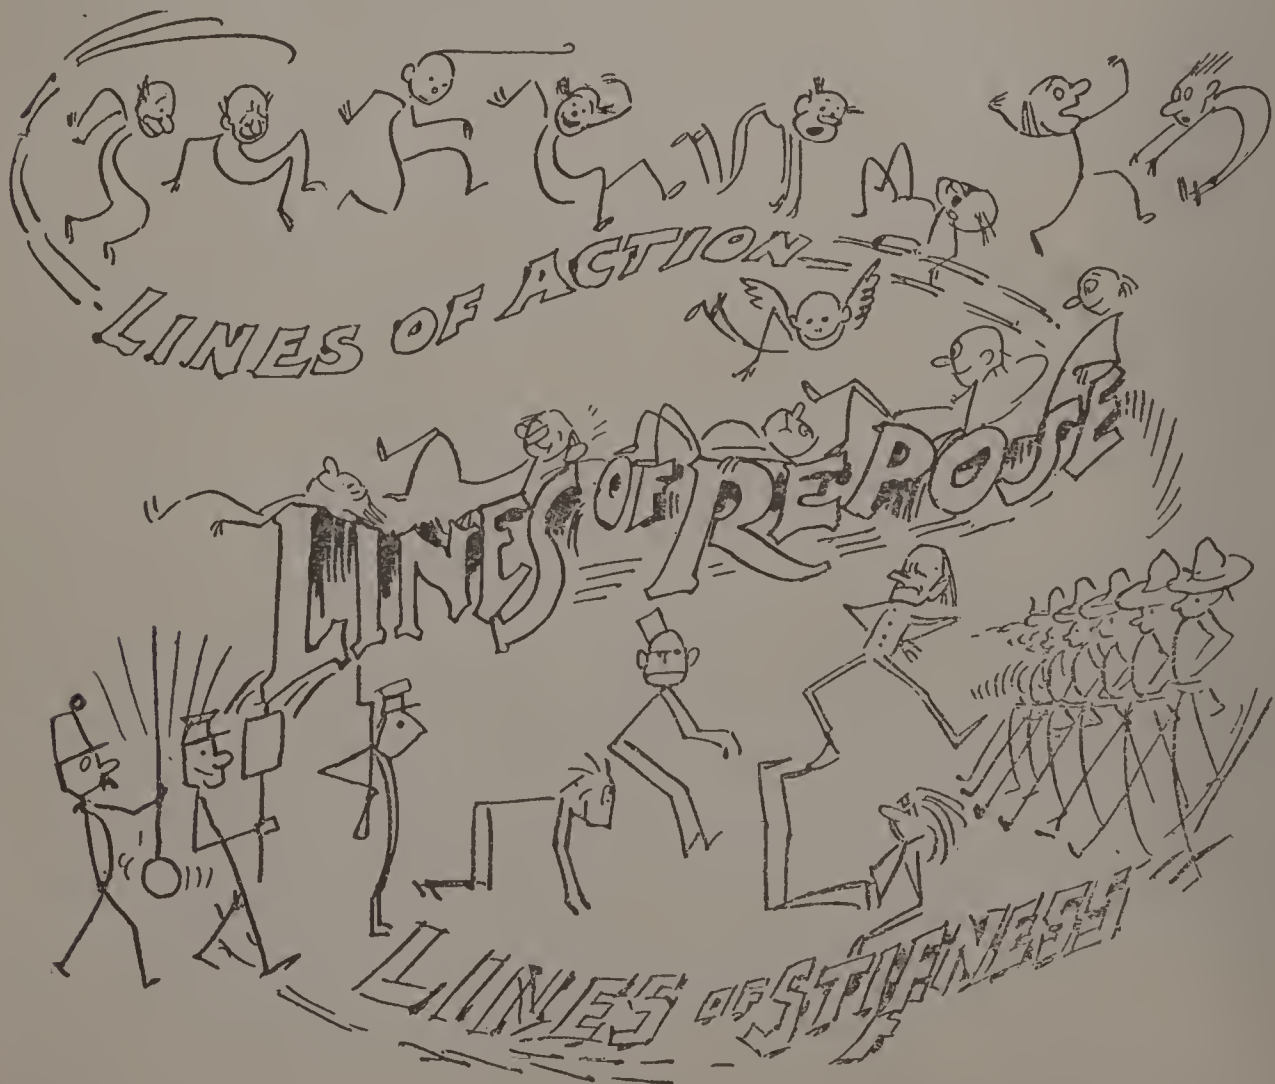 LINES OF ACTION
LINES OF REPOSE
LINES OF STIFFNESS